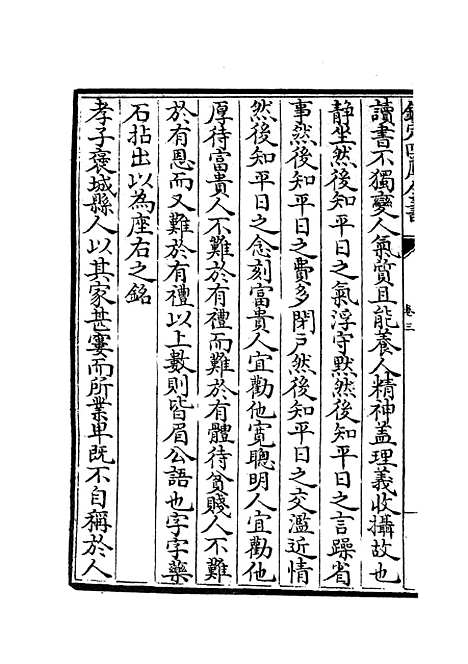 欽定四庫全書
卷三
讀書不獨變人氣質且能養人精神蓋理義收攝故也
靜坐然後知平日之氣浮守默然後知平日之言躁省
事然後知平日之費多閉戶然後知平日之交濫近情
然後知平日之念刻富貴人宜勸他寛聰明人宜勸他
厚待富貴人不難於有禮而難於有體待貧賤人不難
於有恩而又難於有禮以上數則皆眉公語也字字藥
石拈出以為座右之銘
孝子褒城縣人以其家甚寠而所業卑既不自稱於人